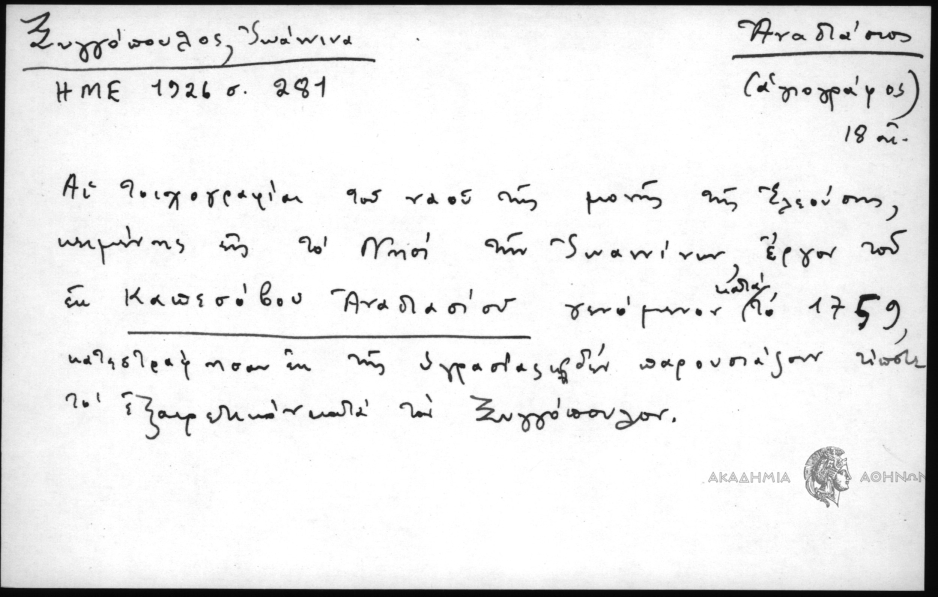 Ξυγγόπουλος, Ἰωάννινα
ΗΜΕ 1926 σ. 281
Ἀναστάσιος
(ἁγιογράφος)
18 αἰ.
Αἱ τοιχογραφίαι τοῦ ναοῦ τῆς μονῆς τῆς Ἐλεούσης,
κειμένης εἰς τὸ Νησὶ τῶν Ἰωαννίνων, ἔργον τοῦ
ἐκ Καπεσόβου Ἀναστασίου γενόμενον κατὰ τὸ 1759,
κατεστράφησαν ἐκ τῆς ὑγρασίας, δὲν παρουσιάζουν τίποτε
τὸ ἐξαιρετικὸν κατὰ τὸν Ξυγγόπουλον.
ΑΚΑΔΗΜΙΑ ΑΘΗΝΩΝ